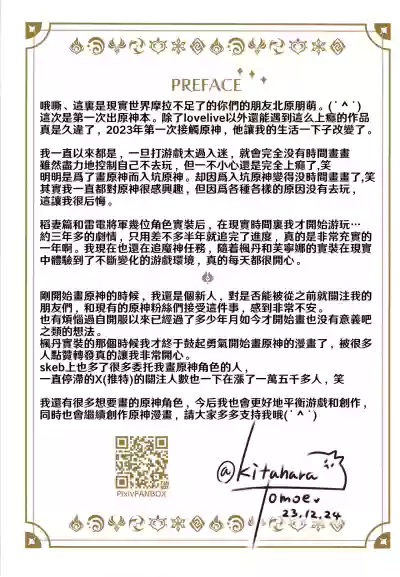 PREFACE
哦嘶、這裏是現實世界摩拉不足了的你們的朋友北原朋萌。(´^`)
這次是第一次出原神本。除了lovelive以外還能遇到這么上癮的作品
真是久違了，2023年第一次接觸原神，他讓我的生活一下子改變了。
我一直以來都是，一旦打游戲太過入迷，就會完全沒有時間畫畫
雖然盡力地控制自己不去玩，但一不小心還是完全上癮了,笑
明明是爲了畫原神而入坑原神。却因爲入坑原神變得没時間畫畫了,笑
其實我一直都對原神很感興趣，但因爲各種各樣的原因没有去玩，
這讓我很后悔。
稻妻篇和雷電將軍幾位角色實裝后，在現實時間裏我才開始游玩…
約三年多的劇情，只用差不多半年就追完了進度，真的是非常充實的
一年啊。我現在也還在追魔神任務，隨着楓丹和芙寧娜的實裝在現實
中體驗到了不斷變化的游戲環境，真的每天都很開心。
剛開始畫原神的時候，我還是個新人，對是否能被從之前就關注我的
朋友們，和現有的原神粉絲們接受這件事，感到非常不安。
也有煩惱過自開服以來已經過了多少年月如今才開始畫也没有意義吧
之類的想法。
楓丹實裝的那個時候我才終于鼓起勇氣開始畫原神的漫畫了，被很多
人點贊轉發真的讓我非常開心。
skeb上也多了很多委托我畫原神角色的人，
一直停滞的X(推特)的關注人數也一下在漲了一萬五千多人，笑
我還有很多想要畫的原神角色，今后我也會更好地平衡游戲和創作，
同時也會繼續創作原神漫畫，請大家多多支持我哦(´^`)
PixivFANBOX
@Kitahara
Tomoe.
23.12.24